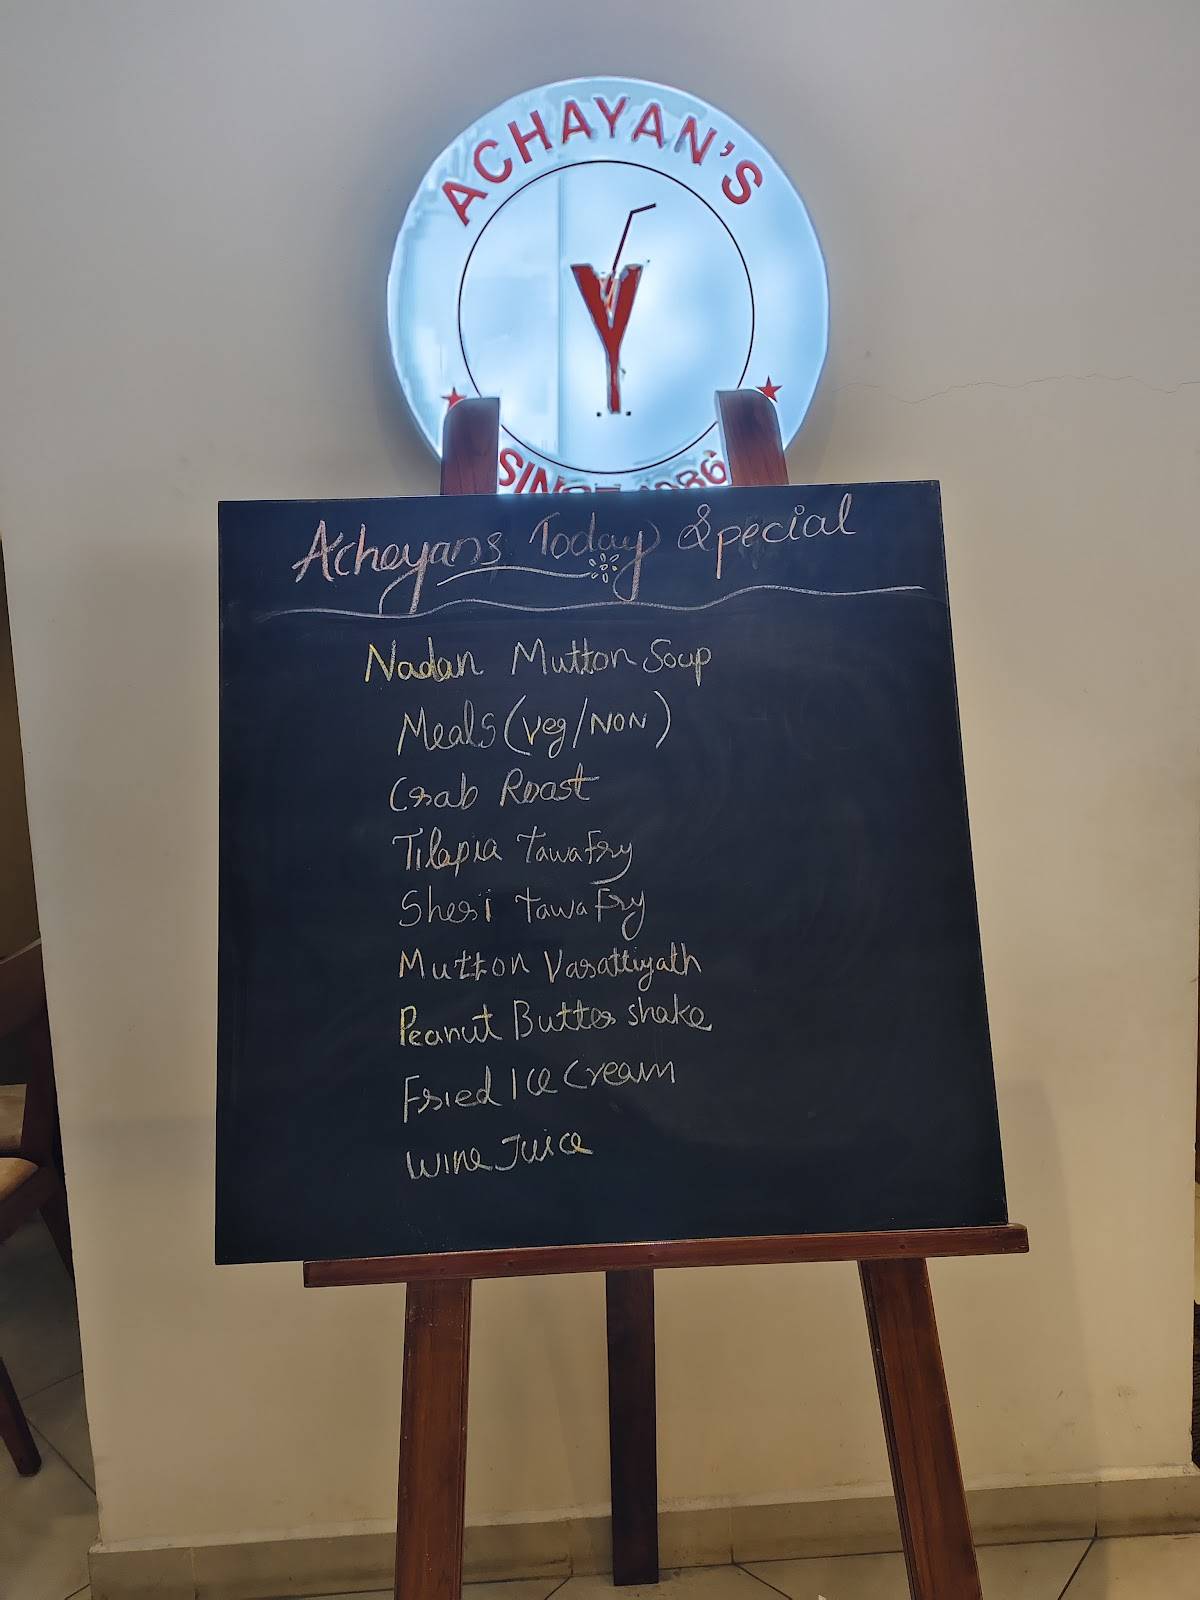 ACHAYAN'S
SINCE 1986
Achayans Today Special
Nadan Mutton Soup
Meals (Veg/NON)
Crab Roast
Tilapia Tawa Fry
Sheri Tawa Fry
Mutton Varattiyath
Peanut Butter Shake
Fried Ice Cream
Wine Juice